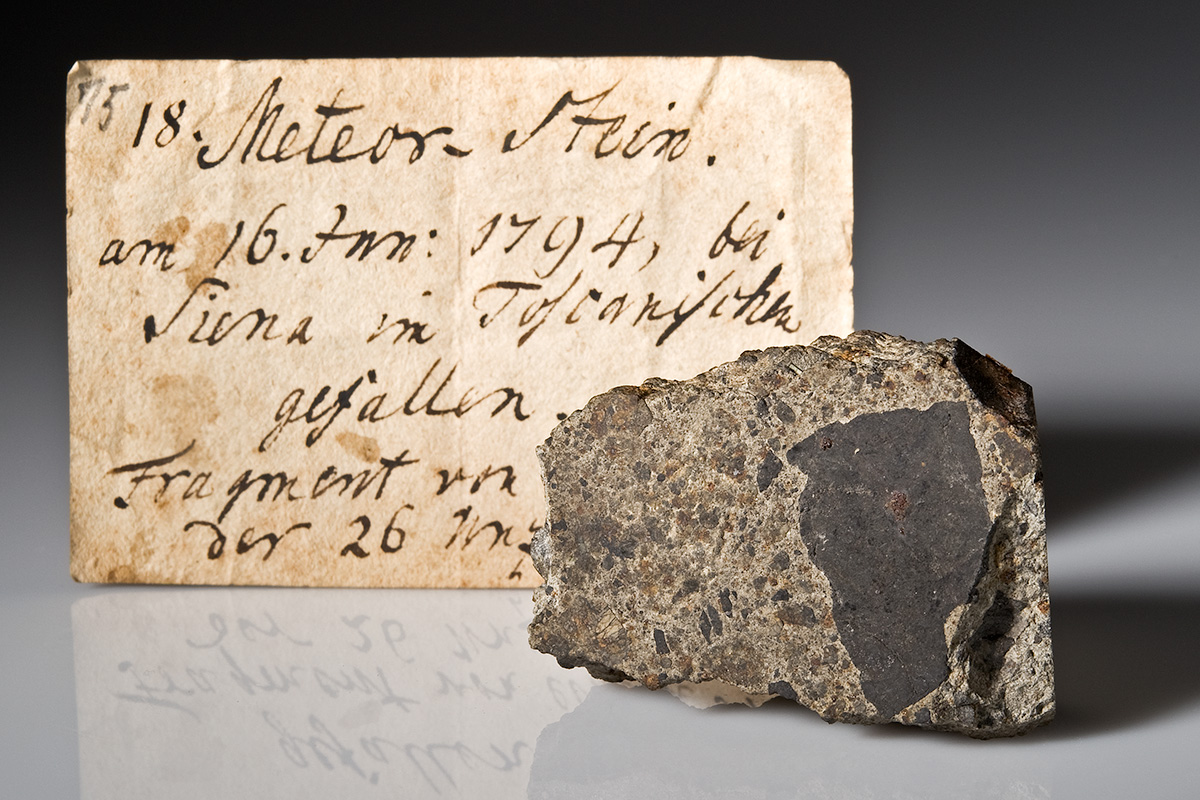 75
18. Meteor-Stein.
am 16. Jun: 1794, bei
Siena im Toscanischen
gefallen.
Fragment von
der 26 Unz